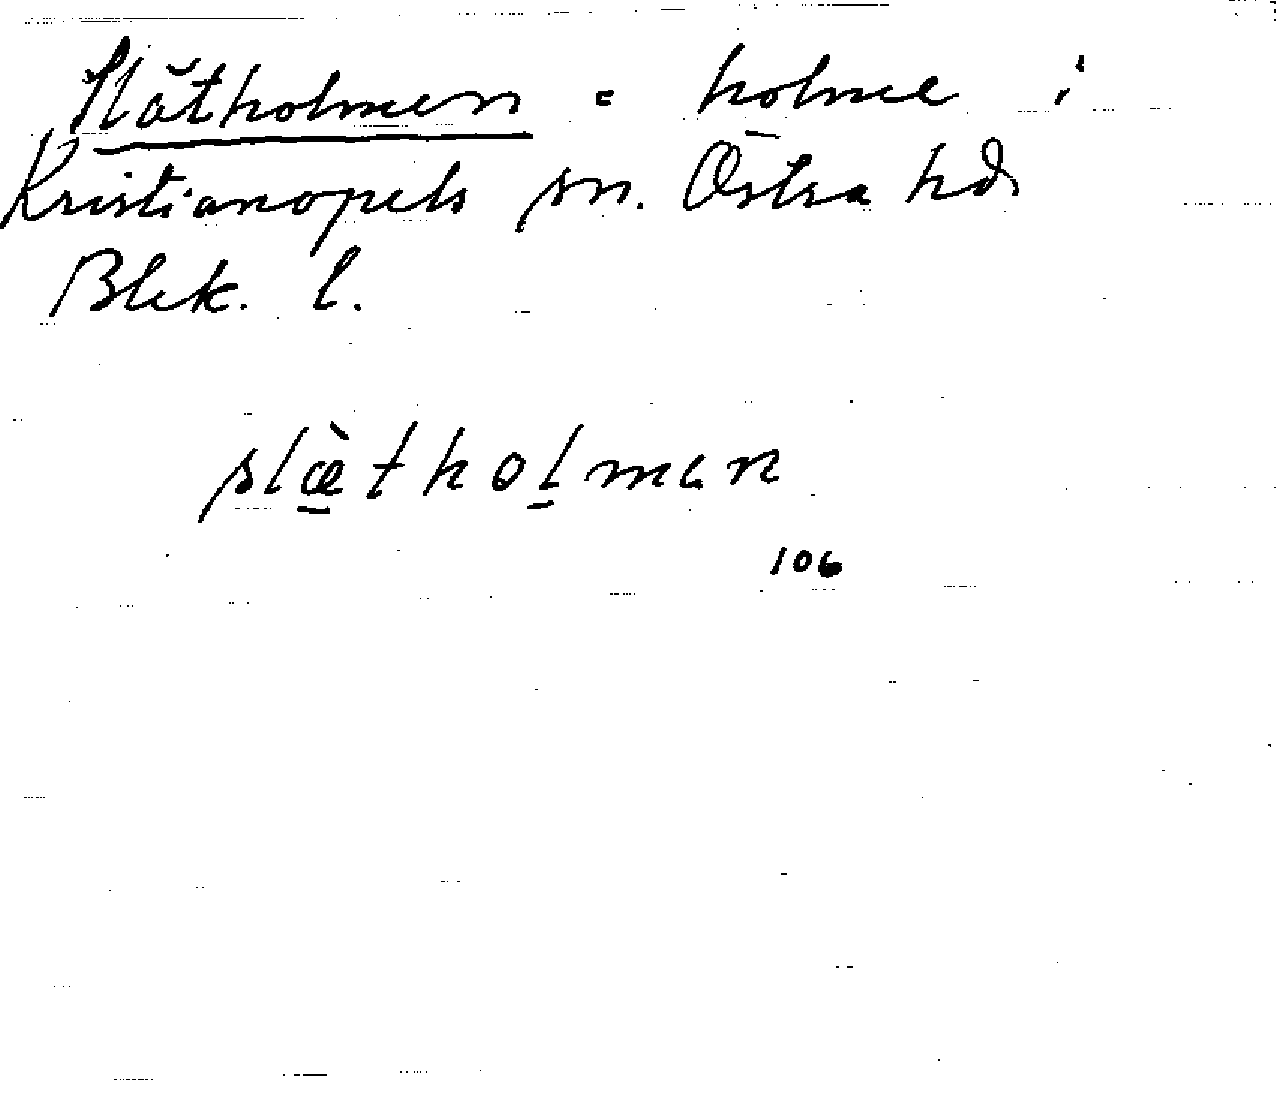 Slätholmen = holme i
Kristianopels sn. Östra hd
Blek. l.
slæ̀tholmen
106